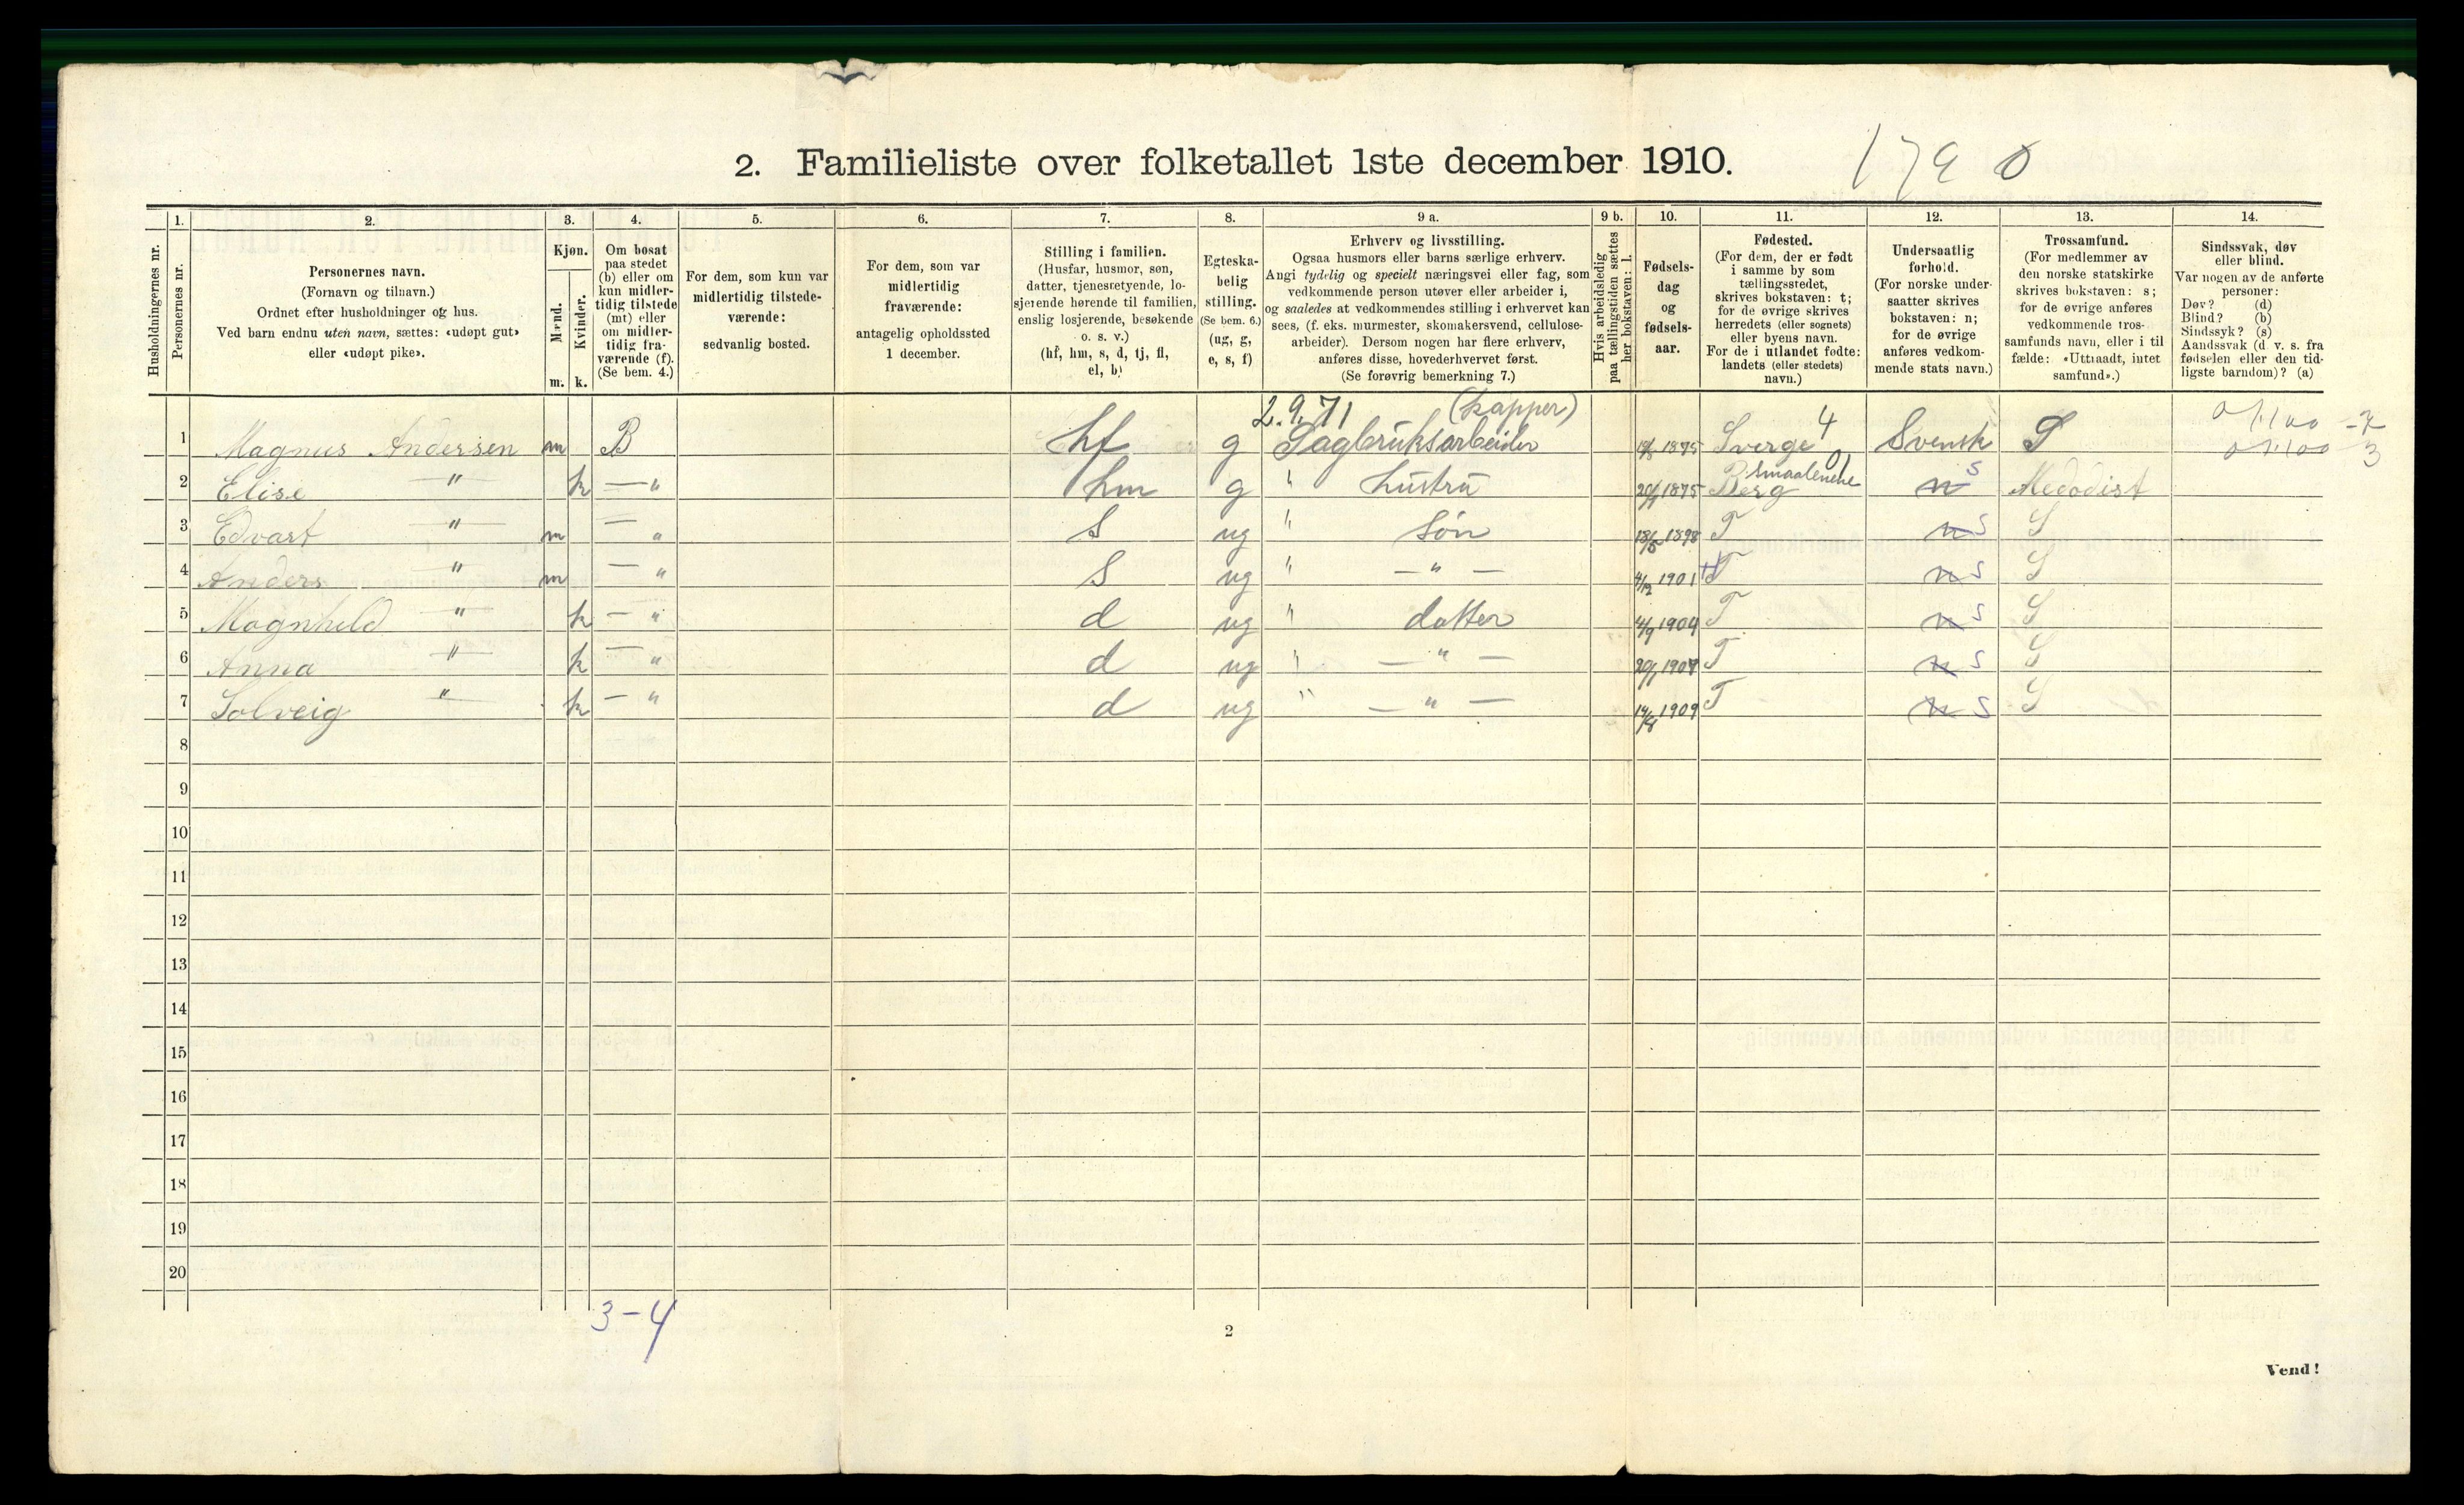 2. Familieliste over folketallet 1ste december 1910.
1790
Husholdningernes nr.
1.
Personernes nr.
2.
Personernes navn.
(Fornavn og tilnavn.)
Ordnet efter husholdninger og hus.
Ved barn endnu uten navn, sættes: «udøpt gut»
eller «udøpt pike».
3.
Kjøn.
Mænd.
Kvinder.
m. k.
4.
Om bosat
paa stedet
(b) eller om
kun midler-
tidig tilstede
(mt) eller
om midler-
tidig fra-
værende (f).
(Se bem. 4.)
5.
For dem, som kun var
midlertidig tilstede-
værende:
sedvanlig bosted.
6.
For dem, som var
midlertidig
fraværende:
antagelig opholdssted
1 december.
7.
Stilling i familien.
(Husfar, husmor, søn,
datter, tjenestetyende, lo-
sjerende hørende til familien,
enslig losjerende, besøkende
o. s. v.)
(hf, hm, s, d, tj, fl,
el, b)
8.
Egteska-
belig
stilling.
(Se bem. 6.)
(ug, g,
e, s, f)
9 a.
Erhverv og livsstilling.
Ogsaa husmors eller barns særlige erhverv.
Angi tydelig og specielt næringsvei eller fag, som
vedkommende person utøver eller arbeider i,
og saaledes at vedkommendes stilling i erhvervet kan
sees, (f. eks. murmester, skomakersvend, cellulose-
arbeider). Dersom nogen har flere erhverv,
anføres disse, hovederhvervet først.
(Se forøvrig bemerkning 7.)
9 b.
Hvis arbeidsledig
paa tællingstiden sættes
her bokstaven: l.
10.
Fødsels-
dag
og
fødsels-
aar.
11.
Fødested.
(For dem, der er født
i samme by som
tællingsstedet,
skrives bokstaven: t;
for de øvrige skrives
herredets (eller sognets)
eller byens navn.
For de i utlandet fødte:
landets (eller stedets)
navn.)
12.
Undersaatlig
forhold.
(For norske under-
saatter skrives
bokstaven: n;
for de øvrige
anføres vedkom-
mende stats navn.)
13.
Trossamfund.
(For medlemmer av
den norske statskirke
skrives bokstaven: s;
for de øvrige anføres
vedkommende tros-
samfunds navn, eller i til-
fælde: «Uttraadt, intet
samfund».)
14.
Sindssvak, døv
eller blind.
Var nogen av de anførte
personer:
Døv? (d)
Blind? (b)
Sindssyk? (s)
Aandssvak (d. v. s. fra
fødselen eller den tid-
ligste barndom)? (a)
2.9.71 (kapper) 4
1 Magnus Andersen m B hf g Sagbruksarbeider 1875 Sverge Svensk S
Smaalenene
2 Elise " k — " hm g " hustru 1875 Berg n s Medodist
3 Edvart " m — " S ug " Søn 1898 T n s S
4 Anders " m — " S ug " — " — 4/12 1901 T n s S
5 Magnhild " k — " d ug " datter 4/9 1904 T n s S
6 Anna " k — " d ug " — " — 20/1 1907 T n s S
7 Solveig " k — " d ug " — " — 14/8 1909 T n s S
8
9
10
11
12
13
14
15
16
17
18
19
20
3-4
2
Vend!